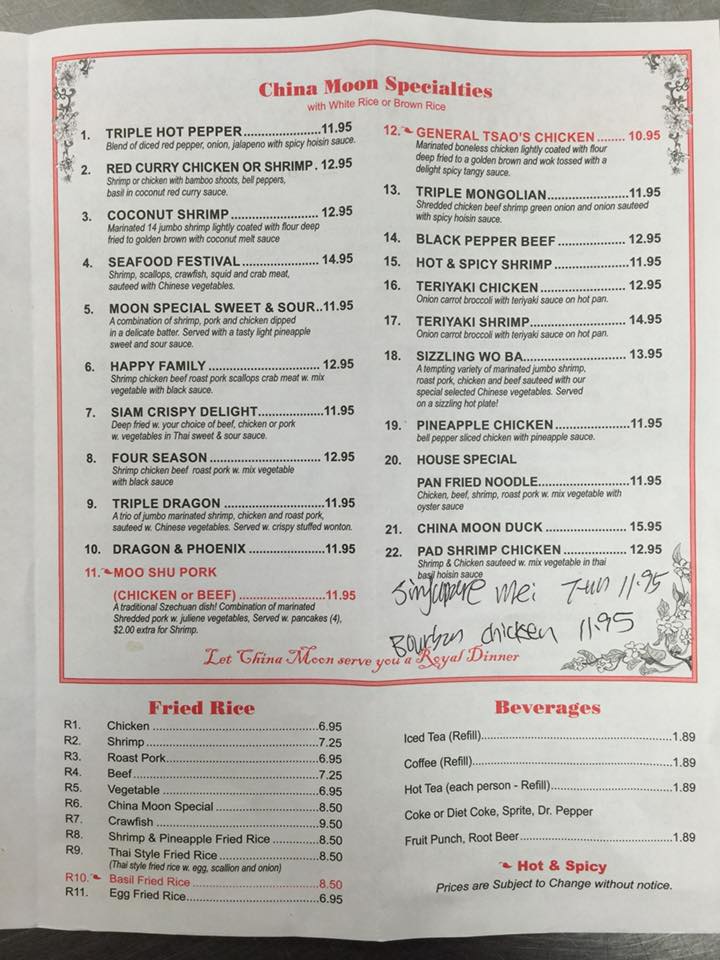 China Moon Specialties
with White Rice or Brown Rice
1. TRIPLE HOT PEPPER....................11.95
Blend of diced red pepper, onion, jalapeno with spicy hoisin sauce.
2. RED CURRY CHICKEN OR SHRIMP. 12.95
Shrimp or chicken with bamboo shoots, bell peppers,
basil in coconut red curry sauce.
3. COCONUT SHRIMP ...................... 12.95
Marinated 14 jumbo shrimp lightly coated with flour deep
fried to golden brown with coconut melt sauce
4. SEAFOOD FESTIVAL .................... 14.95
Shrimp, scallops, crawfish, squid and crab meat,
sauteed with Chinese vegetables.
5. MOON SPECIAL SWEET & SOUR..11.95
A combination of shrimp, pork and chicken dipped
in a delicate batter. Served with a tasty light pineapple
sweet and sour sauce.
6. HAPPY FAMILY ............................ 12.95
Shrimp chicken beef roast pork scallops crab meat w. mix
vegetable with black sauce.
7. SIAM CRISPY DELIGHT.................11.95
Deep fried w. your choice of beef, chicken or pork
w. vegetables in Thai sweet & sour sauce.
8. FOUR SEASON ............................ 12.95
Shrimp chicken beef roast pork w. mix vegetable
with black sauce
9. TRIPLE DRAGON ..........................11.95
A trio of jumbo marinated shrimp, chicken and roast pork,
sauteed w. Chinese vegetables. Served w. crispy stuffed wonton.
10. DRAGON & PHOENIX .....................11.95
11. MOO SHU PORK
(CHICKEN or BEEF) .......................11.95
A traditional Szechuan dish! Combination of marinated
Shredded pork w. juliene vegetables, Served w. pancakes (4),
$2.00 extra for Shrimp.
12. GENERAL TSAO'S CHICKEN ....... 10.95
Marinated boneless chicken lightly coated with flour
deep fried to a golden brown and wok tossed with a
delight spicy tangy sauce.
13. TRIPLE MONGOLIAN.....................11.95
Shredded chicken beef shrimp green onion and onion sauteed
with spicy hoisin sauce.
14. BLACK PEPPER BEEF ................. 12.95
15. HOT & SPICY SHRIMP ...................11.95
16. TERIYAKI CHICKEN ..................... 12.95
Onion carrot broccoli with teriyaki sauce on hot pan.
17. TERIYAKI SHRIMP........................ 14.95
Onion carrot broccoli with teriyaki sauce on hot pan.
18. SIZZLING WO BA.......................... 13.95
A tempting variety of marinated jumbo shrimp,
roast pork, chicken and beef sauteed with our
special selected Chinese vegetables. Served
on a sizzling hot plate!
19. PINEAPPLE CHICKEN ...................11.95
bell pepper sliced chicken with pineapple sauce.
20. HOUSE SPECIAL
PAN FRIED NOODLE.......................11.95
Chicken, beef, shrimp, roast pork w. mix vegetable with
oyster sauce
21. CHINA MOON DUCK .................... 15.95
22. PAD SHRIMP CHICKEN ................ 12.95
Shrimp & Chicken sauteed w. mix vegetable in thai
basil hoisin sauce
Singapore mei Fun 11.95
Bourbon chicken 11.95
Let China Moon serve you a Royal Dinner
Fried Rice
R1. Chicken ....................................................6.95
R2. Shrimp .....................................................7.25
R3. Roast Pork................................................6.95
R4. Beef.........................................................7.25
R5. Vegetable .................................................6.95
R6. China Moon Special ..................................8.50
R7. Crawfish ...................................................9.50
R8. Shrimp & Pineapple Fried Rice ..................8.50
R9. Thai Style Fried Rice .................................8.50
(Thai style fried rice w. egg, scallion and onion)
R10. Basil Fried Rice .......................................8.50
R11. Egg Fried Rice..........................................6.95
Beverages
Iced Tea (Refill)..............................................1.89
Coffee (Refill)..................................................1.89
Hot Tea (each person - Refill)...........................1.89
Coke or Diet Coke, Sprite, Dr. Pepper
Fruit Punch, Root Beer.....................................1.89
Hot & Spicy
Prices are Subject to Change without notice.